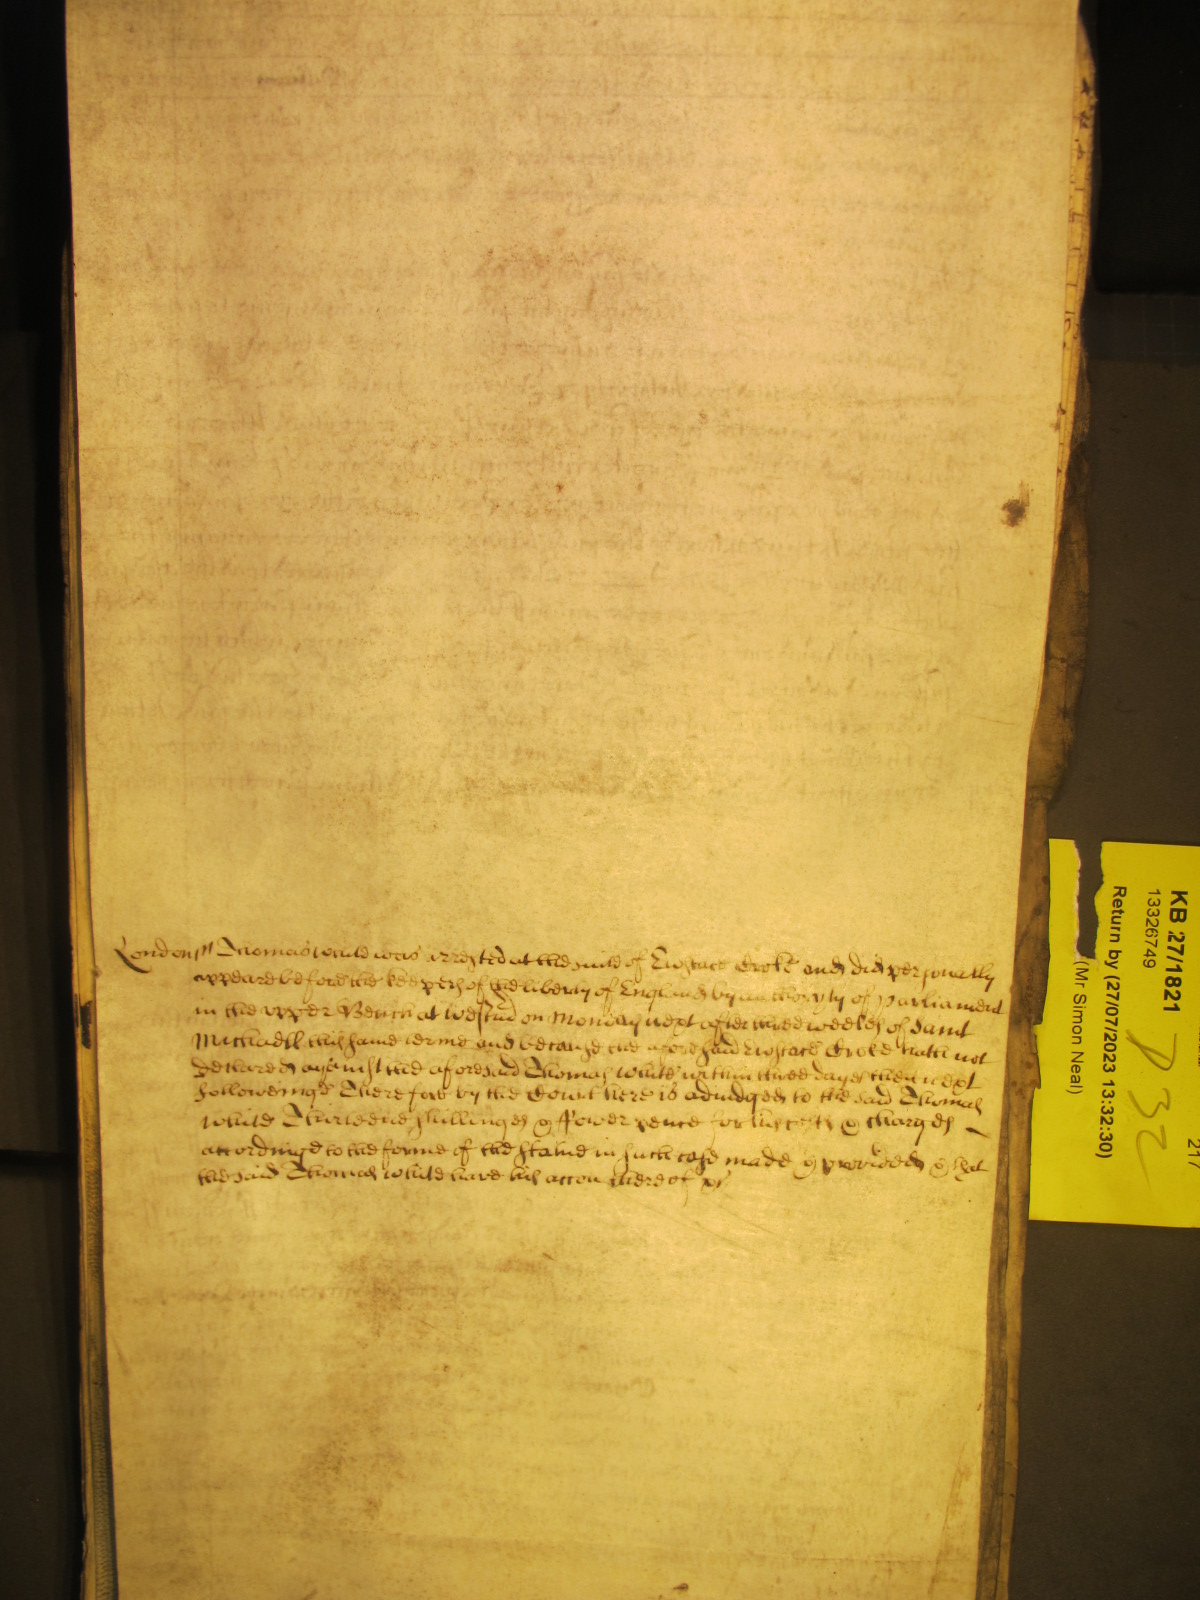 London ss Thomas White was arrested at the suite of Eustace Croke and did personally
appeare before the keepers of the liberty of England by authority of Parliament
in the upper Bench at Westmr on Monday next after three weekes of Saint
Michaell this same terme and because the aforesaid Eustace Croke hath not
declared against the aforesaid Thomas White within three dayes then next
followeinge Therefore by the Court here is adiudged to the said Thomas
White Thirteene shillinges & fower pence for his costs & charges
accordinge to the forme of the statute in such case made & provided & that
the said Thomas White have his accon thereof &c
KB 27/1821
13326749
Return by (27/07/2023 13:32:30)
(Mr Simon Neal)
217